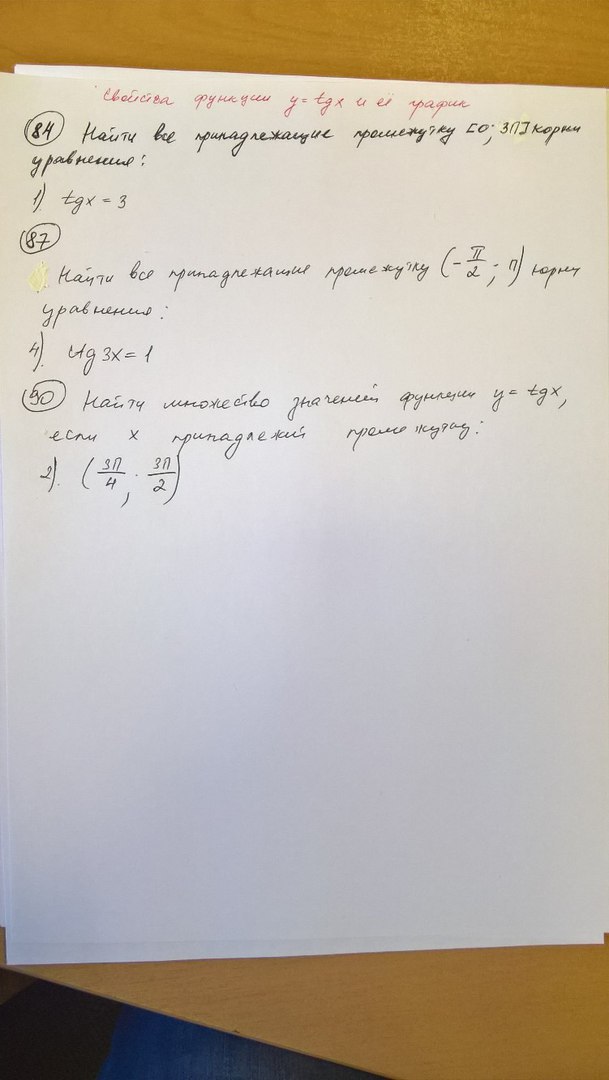 Свойства функции y=tgx и её график
84 Найти все принадлежащие промежутку [0; 3П] корни
уравнения:
1). tgx = 3
87
Найти все принадлежащие промежутку (-П/2; П) корни
уравнения:
4). ctg 3x = 1
90 Найти множество значений функции y = tgx,
если x принадлежит промежутку:
2). (3П/4; 3П/2)